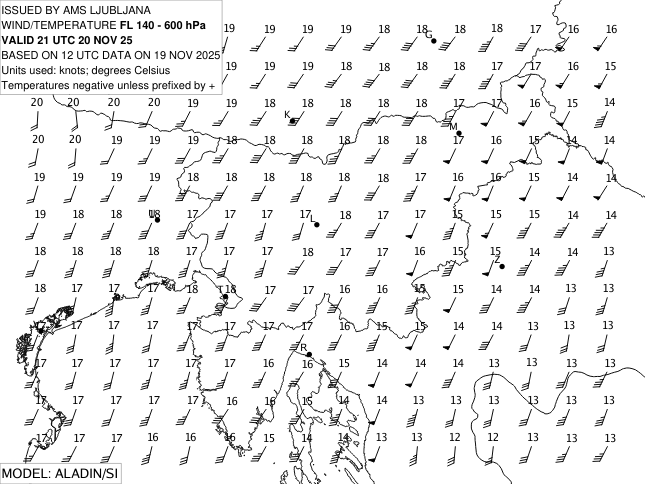 ISSUED BY AMS LJUBLJANA
WIND/TEMPERATURE FL 140 - 600 hPa
VALID 21 UTC 20 NOV 25
BASED ON 12 UTC DATA ON 19 NOV 2025
Units used: knots; degrees Celsius
Temperatures negative unless prefixed by +
19 19 19 18 18 18 18 18 17 16 16
G
19 19 18 18 18 18 18 17 17 16 15
20 20 20 20 19 19 18 18 18 18 18 17 17 16 15 14
K
M
20 20 19 19 19 18 18 18 18 18 18 17 16 15 14 14
19 19 19 19 18 18 18 18 18 18 17 16 16 15 14 14
19 18 18 18 17 17 17 17 18 17 17 15 15 15 14 14
L
18 18 18 18 17 17 17 18 17 17 16 15 15 14 14 13
Z
18 17 17 17 16 18 17 17 16 16 15 15 14 14 13 13
T
17 17 17 17 17 17 17 17 16 15 15 14 14 13 13 13
R
17 17 17 17 17 17 16 16 15 14 14 13 13 13 13 13
17 17 17 17 17 16 16 15 14 14 13 13 13 13 13 13
17 17 17 16 16 16 15 14 14 13 13 12 12 13 13 13
MODEL: ALADIN/SI